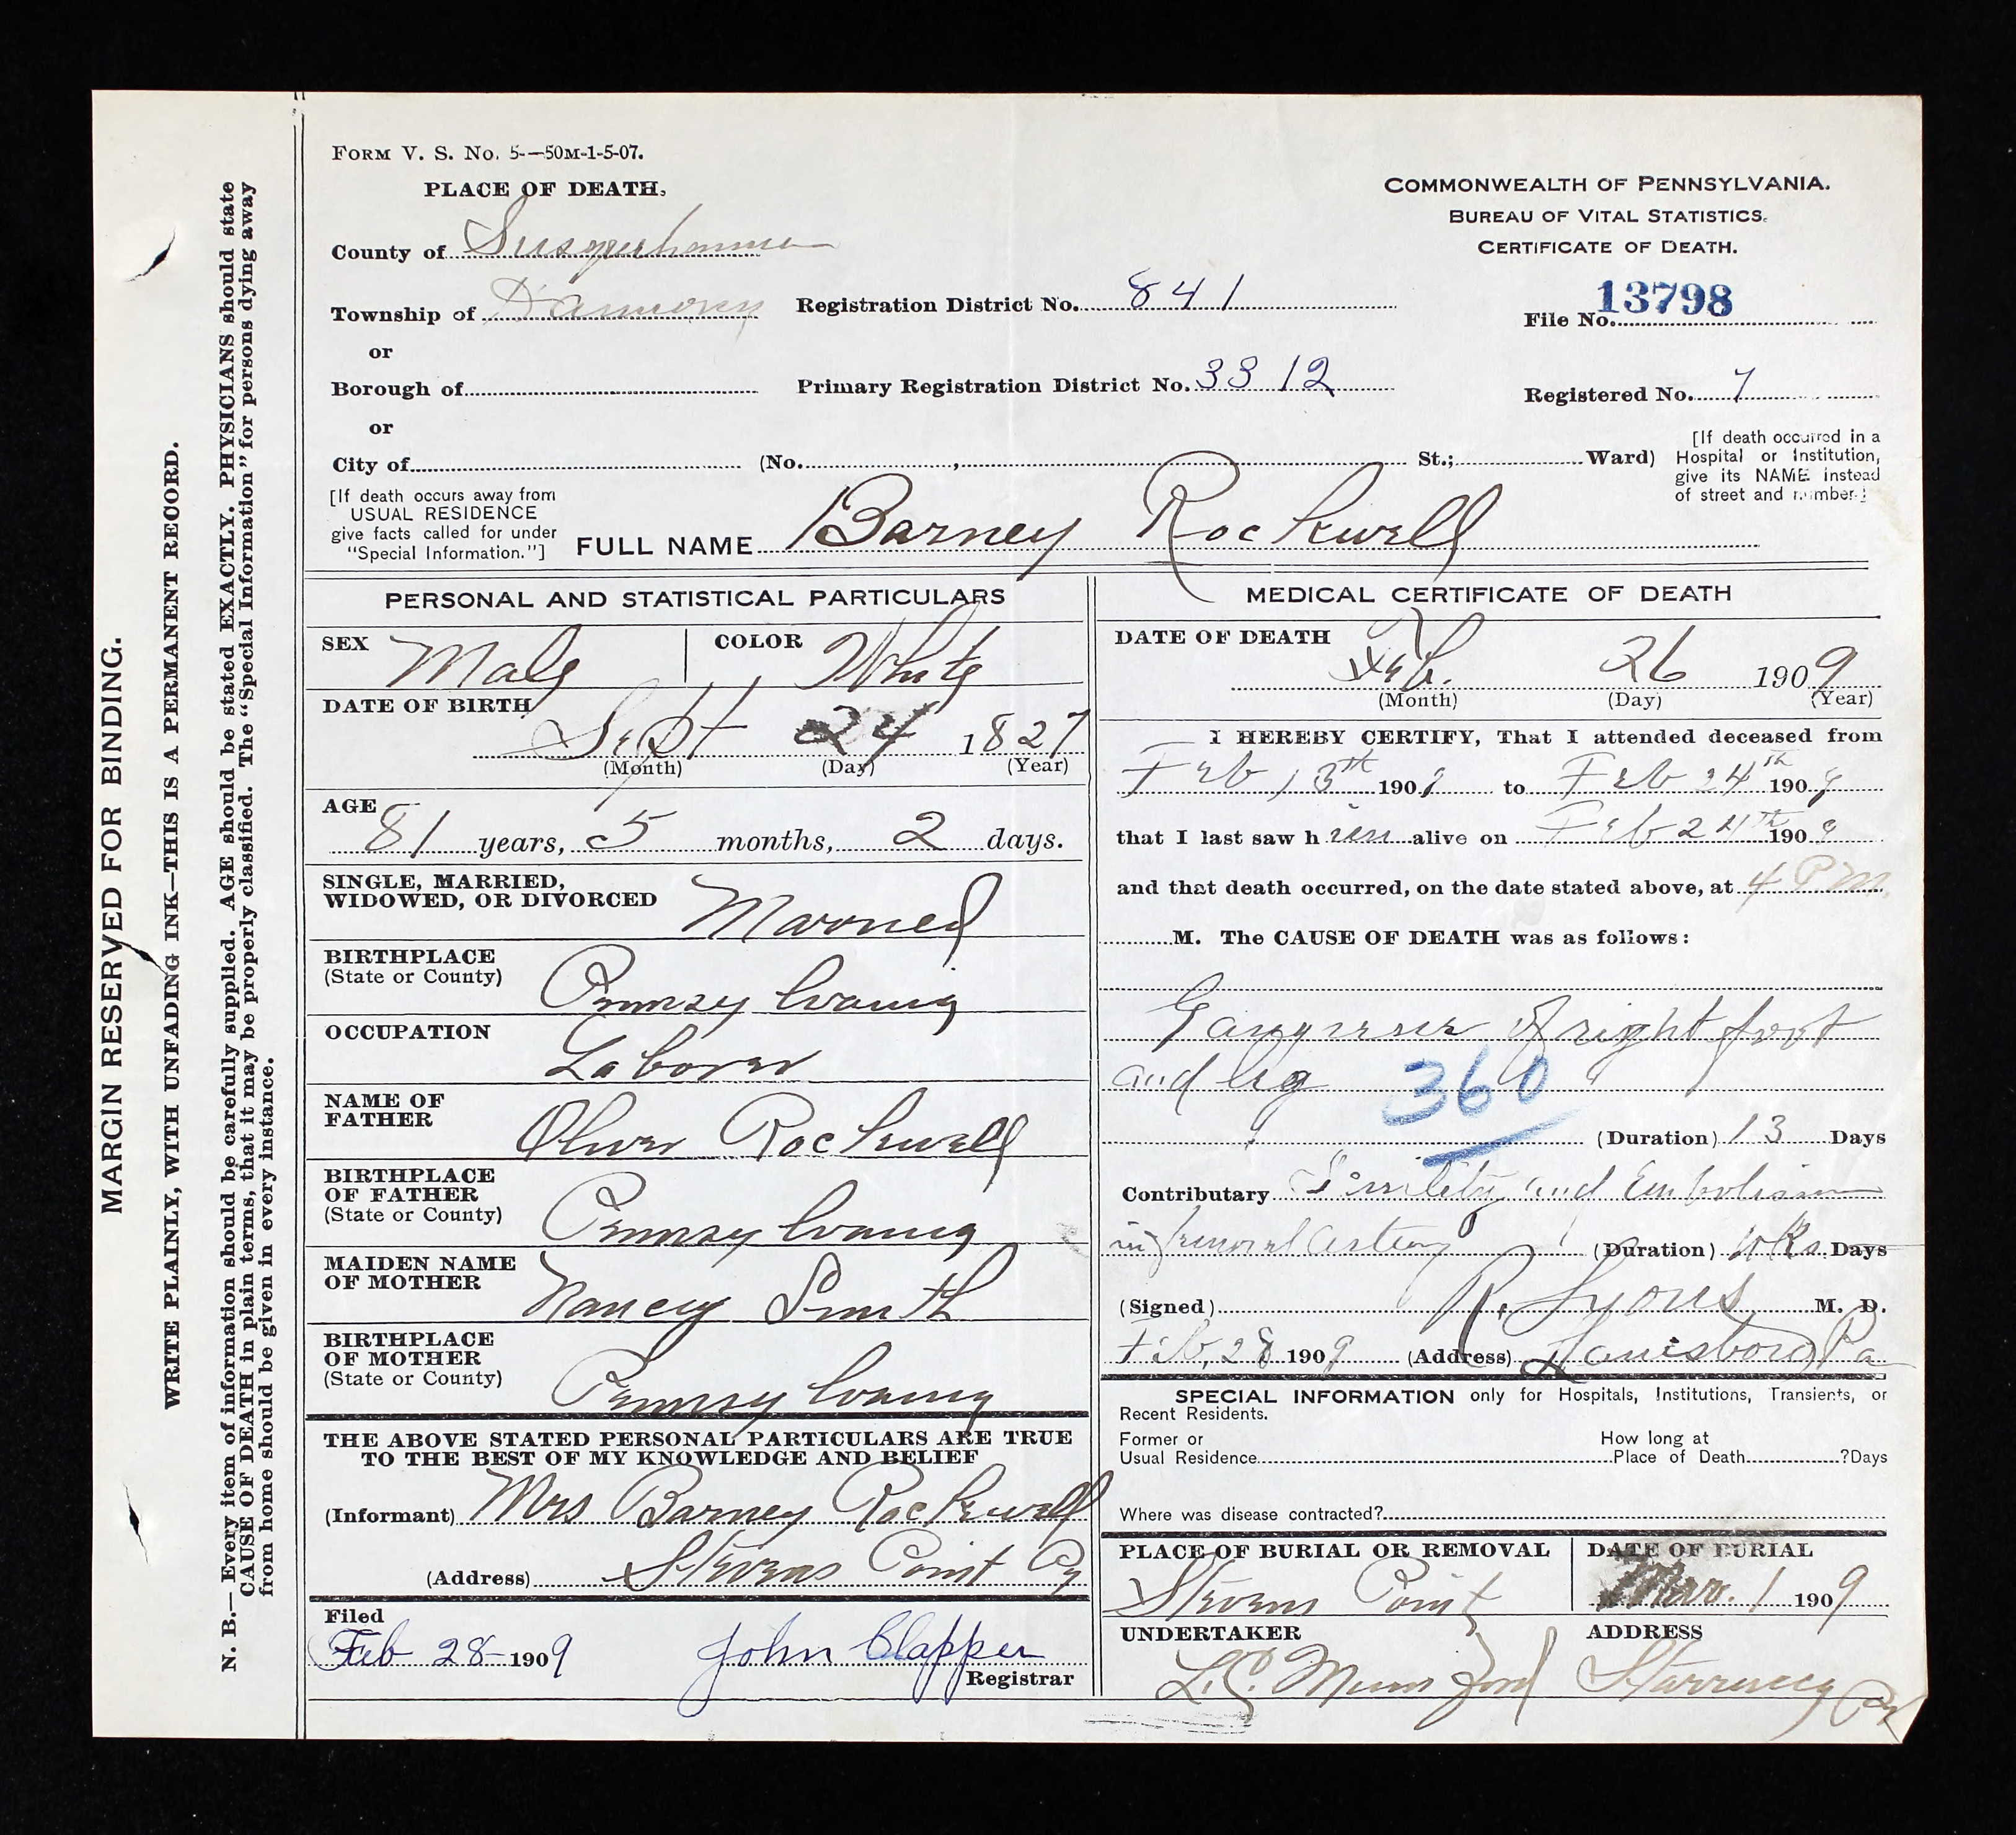 MARGIN RESERVED FOR BINDING.
WRITE PLAINLY, WITH UNFADING INK—THIS IS A PERMANENT RECORD.
N. B.—Every item of information should be carefully supplied. AGE should be stated EXACTLY. PHYSICIANS should state
CAUSE OF DEATH in plain terms, that it may be properly classified. The "Special Information" for persons dying away
from home should be given in every instance.
FORM V. S. No. 5—50M-1-5-07.
PLACE OF DEATH,
County of Susquehanna
Township of Harmony
or
Borough of
or
City of (No. , St.; Ward)
Registration District No. 841
Primary Registration District No. 3312
COMMONWEALTH OF PENNSYLVANIA.
BUREAU OF VITAL STATISTICS.
CERTIFICATE OF DEATH.
File No. 13798
Registered No. 7
[If death occurred in a
Hospital or Institution,
give its NAME instead
of street and number.]
[If death occurs away from
USUAL RESIDENCE
give facts called for under
"Special Information."]
FULL NAME Barney Rockwell
PERSONAL AND STATISTICAL PARTICULARS
SEX Male COLOR White
DATE OF BIRTH
Sept 24 1827
(Month) (Day) (Year)
AGE
81 years, 5 months, 2 days.
SINGLE, MARRIED,
WIDOWED, OR DIVORCED Married
BIRTHPLACE
(State or County) Pennsylvania
OCCUPATION
Laborer
NAME OF
FATHER Oliver Rockwell
BIRTHPLACE
OF FATHER
(State or County) Pennsylvania
MAIDEN NAME
OF MOTHER Nancy Smith
BIRTHPLACE
OF MOTHER
(State or County) Pennsylvania
THE ABOVE STATED PERSONAL PARTICULARS ARE TRUE
TO THE BEST OF MY KNOWLEDGE AND BELIEF
(Informant) Mrs Barney Rockwell
(Address) Stevens Point Pa
Filed
Feb 28- 1909 John Clapper
Registrar
MEDICAL CERTIFICATE OF DEATH
DATE OF DEATH
Feb. 26 1909
(Month) (Day) (Year)
I HEREBY CERTIFY, That I attended deceased from
Feb 13th 1909 to Feb 24th 1909
that I last saw him alive on Feb 24th 1909
and that death occurred, on the date stated above, at 4 PM
M. The CAUSE OF DEATH was as follows:
Gangrene of right foot
and leg 360
(Duration) 13 Days
Contributary Senility and Embolism
in femoral artery (Duration) wks Days
(Signed) R. Lyons M. D.
Feb, 28 1909 (Address) Lanesboro Pa
SPECIAL INFORMATION only for Hospitals, Institutions, Transients, or
Recent Residents.
Former or
Usual Residence
How long at
Place of Death ?Days
Where was disease contracted?
PLACE OF BURIAL OR REMOVAL
Stevens Point
DATE OF BURIAL
Mar. 1 1909
UNDERTAKER
L.C. Mumford
ADDRESS
Starrucca Pa